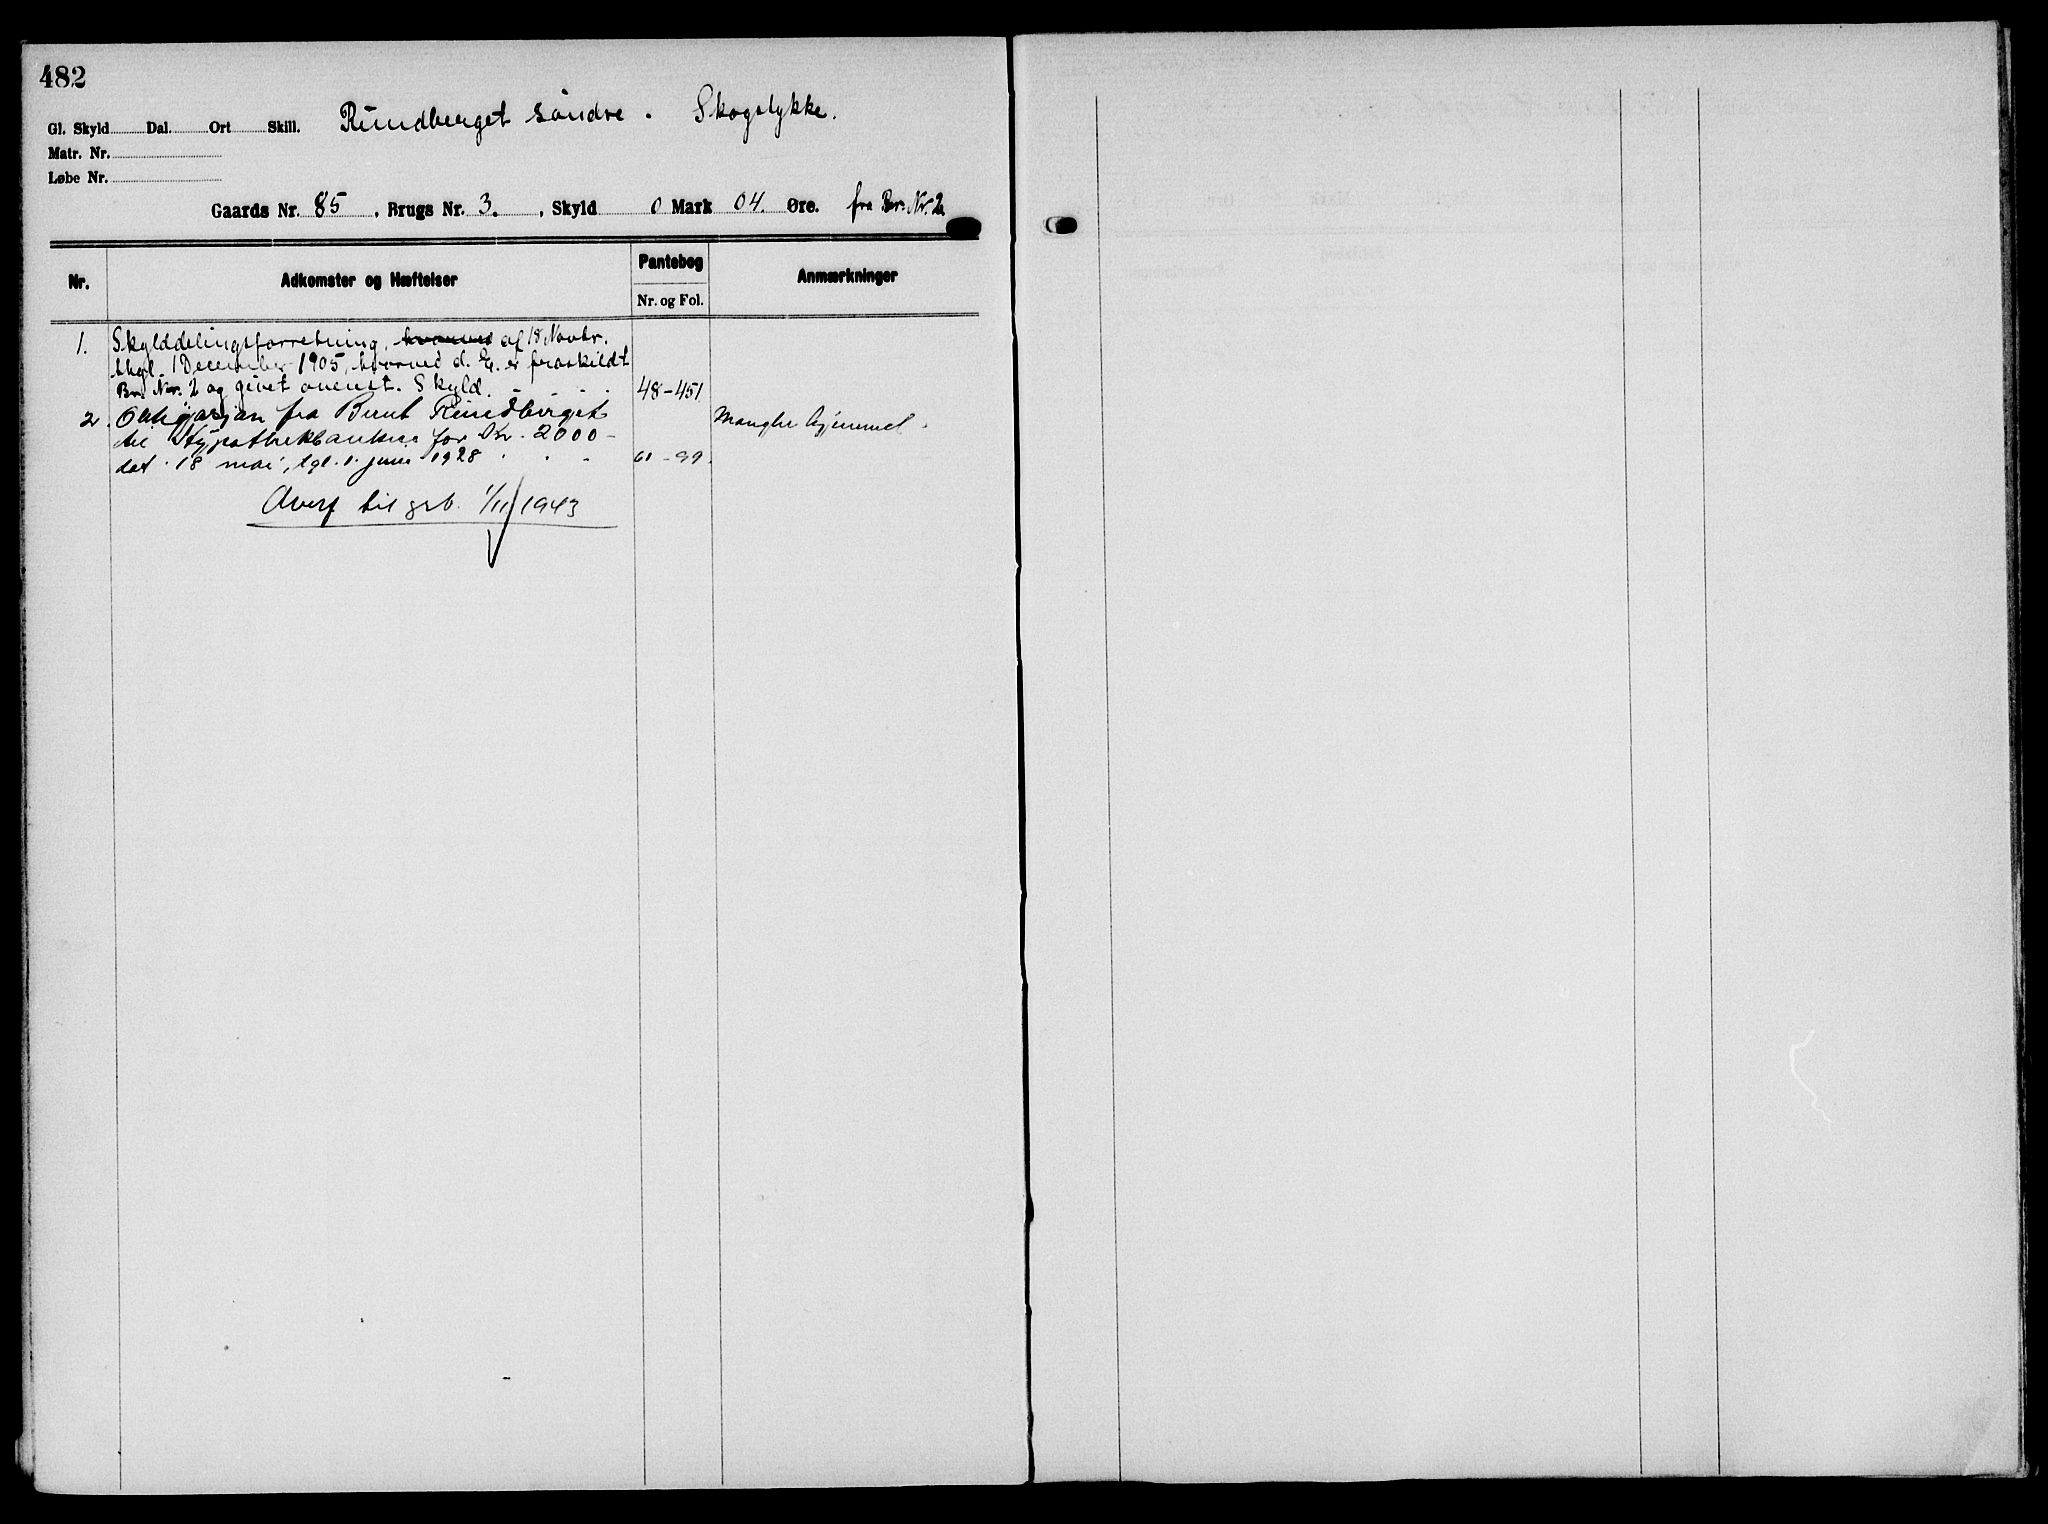 482
Gl. Skyld Dal. Ort Skill. Rundberget søndre. Skogslykke.
Matr. Nr.
Løbe Nr.
Gaards Nr. 85, Brugs Nr. 3., Skyld 0 Mark 04. Øre. fra Br. Nr. 2
Nr. Adkomster og Hæftelser Pantebog Anmærkninger
Nr. og Fol.
1. Skylddelingsforretning, hvorved af 18 Novbr.
thgl. 1 December 1905, hvorved d. E. er fraskildt
Br. Nr. 2 og givet ovenst. Skyld. 48-451
2. Obligasjon fra Bernt Rundberget Mangler hjemmel.
til Hypothekbanken for Kr. 2000-
dat. 18 mai, tgl. 1. juni 1928 61-99.
Overf til grb. 1/11 1943